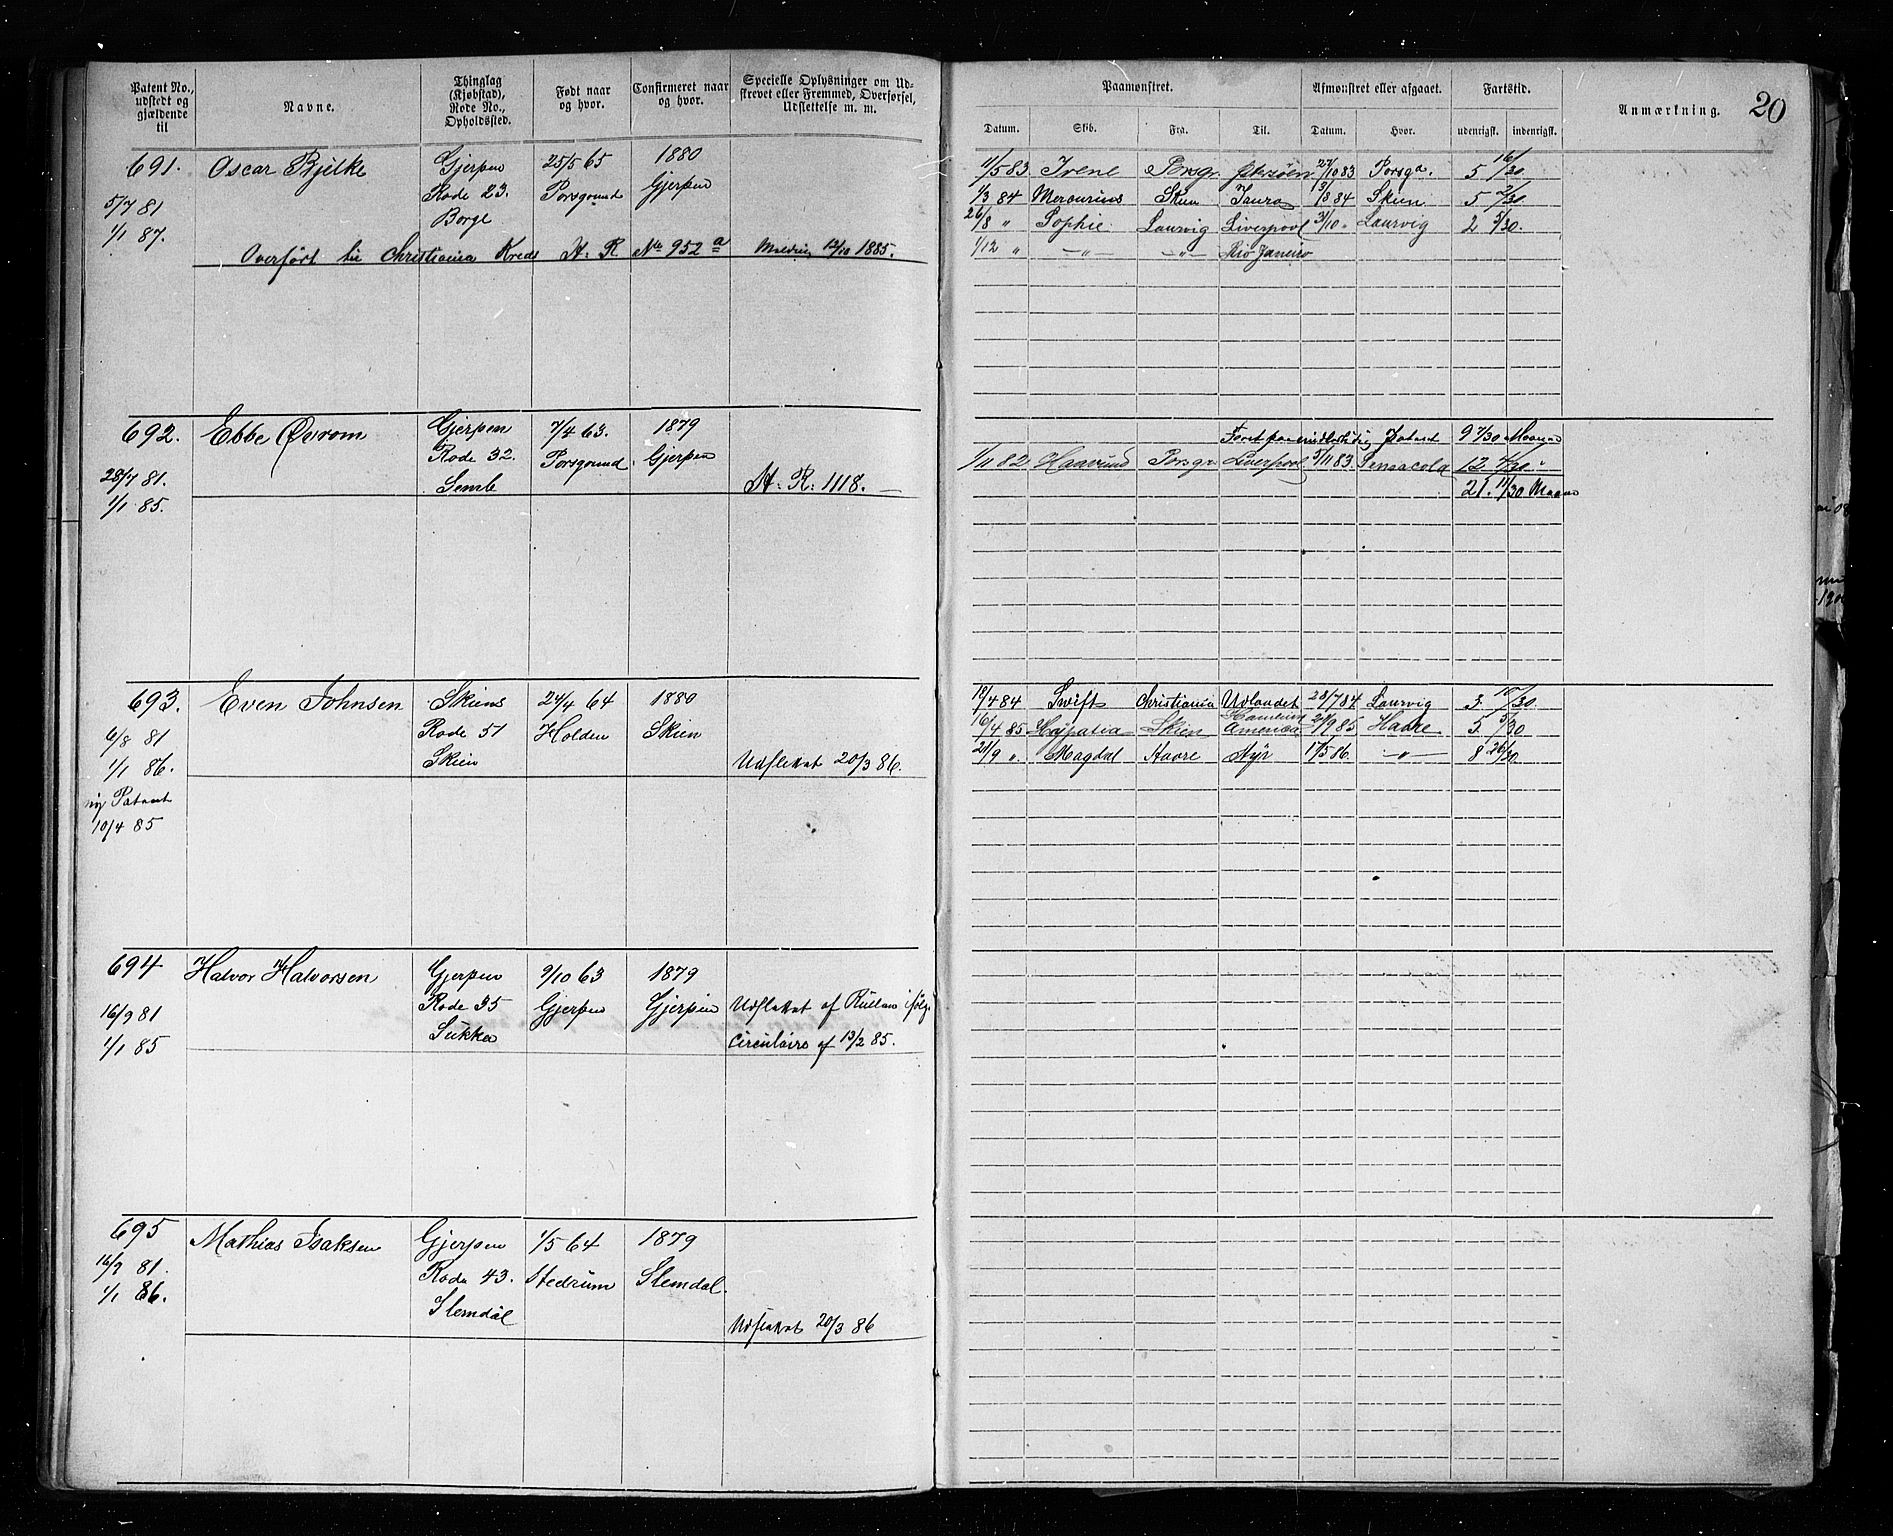 Patent No., udstedt og gjældende til
Navne.
Thinglag (Kjøbstad), Rode No., Opholdssted.
Født naar og hvor.
Confirmeret naar og hvor.
Specielle Oplysninger om Udskrevet eller Fremmed, Overførsel, Udslettelse m. m.
691. Oscar Bjelke Gjerpen 25/5 65 1880
Rode 23. Porsgrund Gjerpen
5/7 81 Borge
1/1 87.
Overført til Christiania Kreds A. R No 952 a 12/10 1885.
692. Ebbe Gjerpen 7/4 63. 1879
Rode 32. Porsgrund Gjerpen
28/7 81. A. R: 1118.
1/1 85.
693. Even Johnsen Skiens 24/4 64 1880
6/8 81 Rode 51 Holden Skien
1/1 86. Skien Udslettet 20/3 86.
ny Patent
10/4 85
694 Halvor Halvorsen Gjerpen 9/10 63 1879
16/9 81 Rode 35 Gjerpen Gjerpen Udslettet af Rullen ifølg.
1/1 85 Circulaire af 13/2 85.
695 Mathias Isaksen Gjerpen 1/5 64 1879
16/9 81. Rode 43. Slemdal.
1/1 86. Slemdal
Udslettet 20/3 86
Paamønstret.
Afmønstret eller afgaaet.
Fartstid.
Anmærkning. 20
Datum. Skib. Fra. Til. Datum. Hvor. udenrigsk. indenrigsk.
11/5 83 Irene Porsgr. 27/10 83 Porsgr. 5 16/30
1/3 84 Mercurius Skien 84 Skien. 5 2/30
26/8 " Sophie Laurvig Liverpool 3/10 " Laurvig 2 5/30.
1/12 " —"— —"— Rio Janeiro
Patent 9 7/30
1/11 82 Porsgr. Liverpool 5/11 83 Pensacola 12 4/30 "
21. 11/30
18/4 84 Swift Christiania Udlandet 28/7 84 Laurvig 3. 10/30
16/4 85 Hypatia Skien Amerika 21/9 85 Havre 5. 5/30
21/9 ". Magdal Havre 17/5 86. —"— 8 26/30